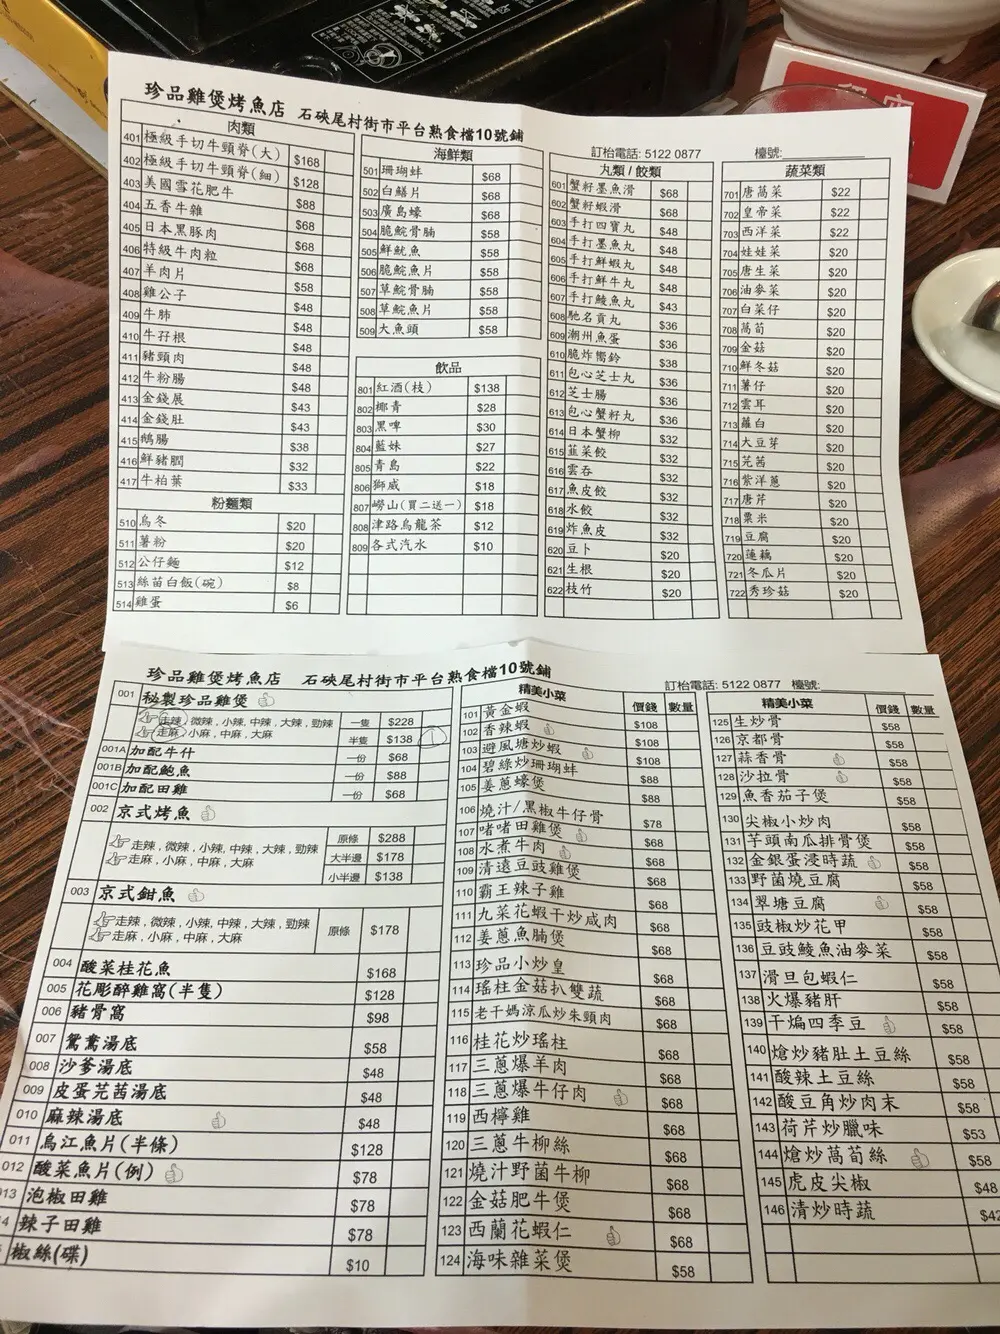 珍品雞煲烤魚店 石硤尾村街市平台熟食檔10號鋪
訂枱電話: 5122 0877 檯號:
肉類
401 極級手切牛頸脊(大) $168
402 極級手切牛頸脊(細) $128
403 美國雪花肥牛 $88
404 五香牛雜 $68
405 日本黑豚肉 $68
406 特級牛肉粒 $68
407 羊肉片 $58
408 雞公子 $48
409 牛肺 $48
410 牛孖根 $48
411 豬頸肉 $48
412 牛粉腸 $48
413 金錢展 $43
414 金錢肚 $43
415 鵝腸 $38
416 鮮豬膶 $32
417 牛柏葉 $33
粉麵類
510 烏冬 $20
511 薯粉 $20
512 公仔麵 $12
513 絲苗白飯(碗) $8
514 雞蛋 $6
海鮮類
501 珊瑚蚌 $68
502 白鱔片 $68
503 廣島蠔 $68
504 脆鯇骨腩 $58
505 鮮魷魚 $58
506 脆鯇魚片 $58
507 草鯇骨腩 $58
508 草鯇魚片 $58
509 大魚頭 $58
飲品
801 紅酒(枝) $138
802 椰青 $28
803 黑啤 $30
804 藍妹 $27
805 青島 $22
806 獅威 $18
807 嶗山(買二送一) $18
808 津路烏龍茶 $12
809 各式汽水 $10
丸類/餃類
601 蟹籽墨魚滑 $68
602 蟹籽蝦滑 $68
603 手打四寶丸 $48
604 手打墨魚丸 $48
605 手打鮮蝦丸 $48
606 手打鮮牛丸 $48
607 手打鯪魚丸 $43
608 馳名貢丸 $36
609 潮州魚蛋 $36
610 脆炸嚮鈴 $38
611 包心芝士丸 $36
612 芝士腸 $36
613 包心蟹籽丸 $36
614 日本蟹柳 $32
615 韮菜餃 $32
616 雲吞 $32
617 魚皮餃 $32
618 水餃 $32
619 炸魚皮 $32
620 豆卜 $20
621 生根 $20
622 枝竹 $20
蔬菜類
701 唐萵菜 $22
702 皇帝菜 $22
703 西洋菜 $22
704 娃娃菜 $20
705 唐生菜 $20
706 油麥菜 $20
707 白菜仔 $20
708 萵筍 $20
709 金菇 $20
710 鮮冬菇 $20
711 薯仔 $20
712 雲耳 $20
713 蘿白 $20
714 大豆芽 $20
715 芫茜 $20
716 紫洋蔥 $20
717 唐芹 $20
718 粟米 $20
719 豆腐 $20
720 蓮藕 $20
721 冬瓜片 $20
722 秀珍菇 $20
珍品雞煲烤魚店 石硤尾村街市平台熟食檔10號鋪
訂枱電話: 5122 0877 檯號:
001 秘製珍品雞煲
走辣, 微辣, 小辣, 中辣, 大辣, 勁辣 一隻 $228
走麻, 小麻, 中麻, 大麻 半隻 $138
001A 加配牛什 一份 $68
001B 加配鮑魚 一份 $88
001C 加配田雞 一份 $68
002 京式烤魚
走辣, 微辣, 小辣, 中辣, 大辣, 勁辣
走麻, 小麻, 中麻, 大麻
原條 $288
大半邊 $178
小半邊 $138
003 京式鉗魚
走辣, 微辣, 小辣, 中辣, 大辣, 勁辣
走麻, 小麻, 中麻, 大麻
原條 $178
004 酸菜桂花魚 $168
005 花彫醉雞窩(半隻) $128
006 豬骨窩 $98
007 鴛鴦湯底 $58
008 沙爹湯底 $48
009 皮蛋芫茜湯底 $48
010 麻辣湯底 $48
011 烏江魚片(半條) $128
012 酸菜魚片(例) $78
13 泡椒田雞 $78
4 辣子田雞 $78
椒絲(碟) $10
精美小菜 價錢 數量
101 黃金蝦 $108
102 香辣蝦 $108
103 避風塘炒蝦 $108
104 碧綠炒珊瑚蚌 $88
105 姜蔥蠔煲 $88
106 燒汁/黑椒牛仔骨 $78
107 啫啫田雞煲 $68
108 水煮牛肉 $68
109 清遠豆豉雞煲 $68
110 霸王辣子雞 $68
111 九菜花蝦干炒咸肉 $68
112 姜蔥魚腩煲 $68
113 珍品小炒皇 $68
114 瑤柱金菇扒雙蔬 $68
115 老干媽涼瓜炒朱頸肉 $68
116 桂花炒瑤柱 $68
117 三蔥爆羊肉 $68
118 三蔥爆牛仔肉 $68
119 西檸雞 $68
120 三蔥牛柳絲 $68
121 燒汁野菌牛柳 $68
122 金菇肥牛煲 $68
123 西蘭花蝦仁 $68
124 海味雜菜煲 $58
精美小菜 價錢 數量
125 生炒骨 $58
126 京都骨 $58
127 蒜香骨 $58
128 沙拉骨 $58
129 魚香茄子煲 $58
130 尖椒小炒肉 $58
131 芋頭南瓜排骨煲 $58
132 金銀蛋浸時蔬 $58
133 野菌燒豆腐 $58
134 翠塘豆腐 $58
135 豉椒炒花甲 $58
136 豆豉鯪魚油麥菜 $58
137 滑旦包蝦仁 $58
138 火爆豬肝 $58
139 干煸四季豆 $58
140 熗炒豬肚土豆絲 $58
141 酸辣土豆絲 $58
142 酸豆角炒肉末 $58
143 荷芹炒臘味 $53
144 熗炒萵荀絲 $58
145 虎皮尖椒 $48
146 清炒時蔬 $42